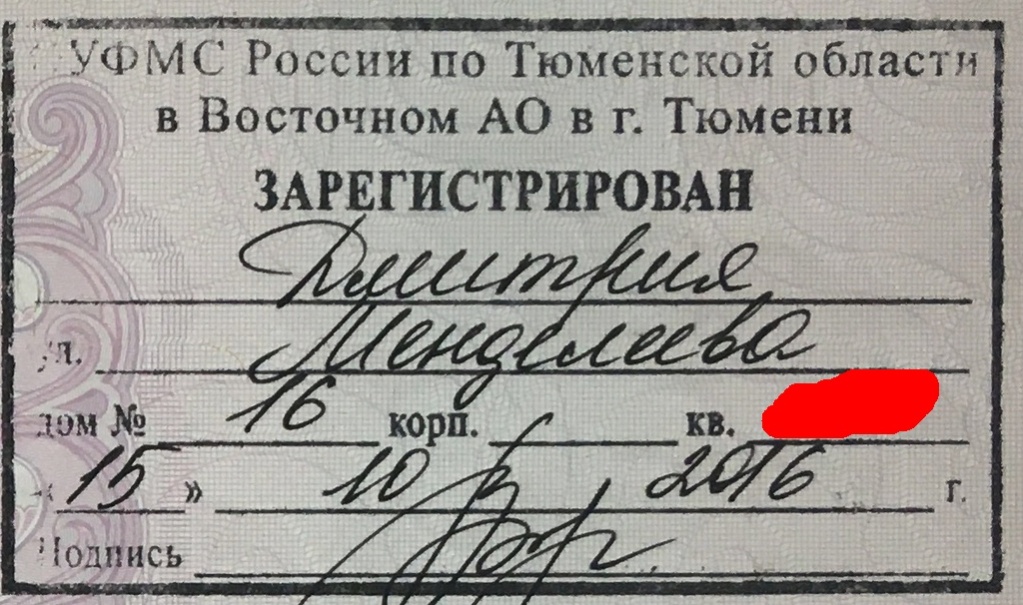 УФМС России по Тюменской области
в Восточном АО в г. Тюмени
ЗАРЕГИСТРИРОВАН
Дмитрия
ул. Менделеева
дом № 16 корп. кв.
« 15 » 10 2016 г.
Подпись